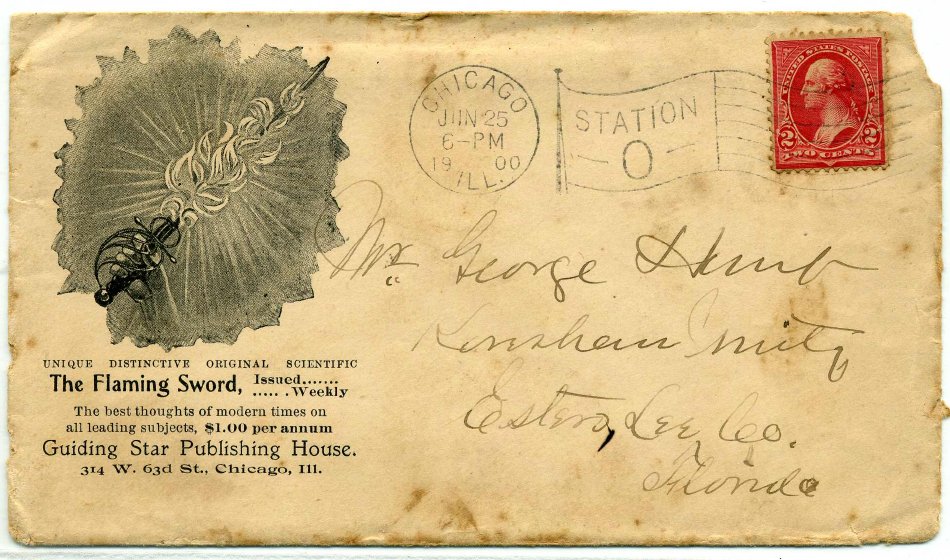 CHICAGO
JUN 25
6-PM
1900
ILL.
STATION
O
UNITED STATES POSTAGE
2 2
TWO CENTS
Mr. George Hunt
Koreshan Unity
Estero, Lee Co.
Florida
UNIQUE DISTINCTIVE ORIGINAL SCIENTIFIC
The Flaming Sword, Issued.......
..... .Weekly
The best thoughts of modern times on
all leading subjects, $1.00 per annum
Guiding Star Publishing House.
314 W. 63d St., Chicago, Ill.